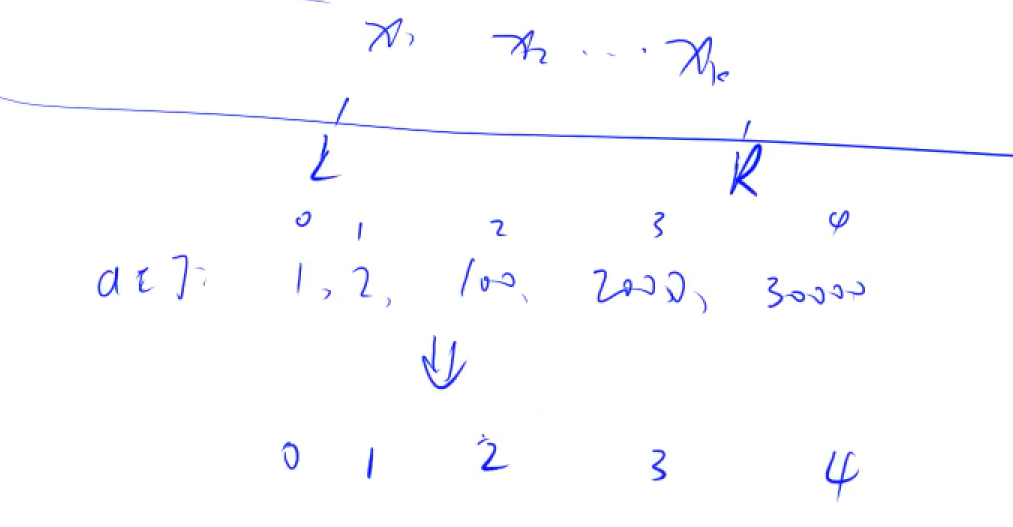 x₁ x₂ ... xₖ
L R
0 1 2 3 4
a[]: 1, 2, 100, 2000, 30000
⇓
0 1 2 3 4